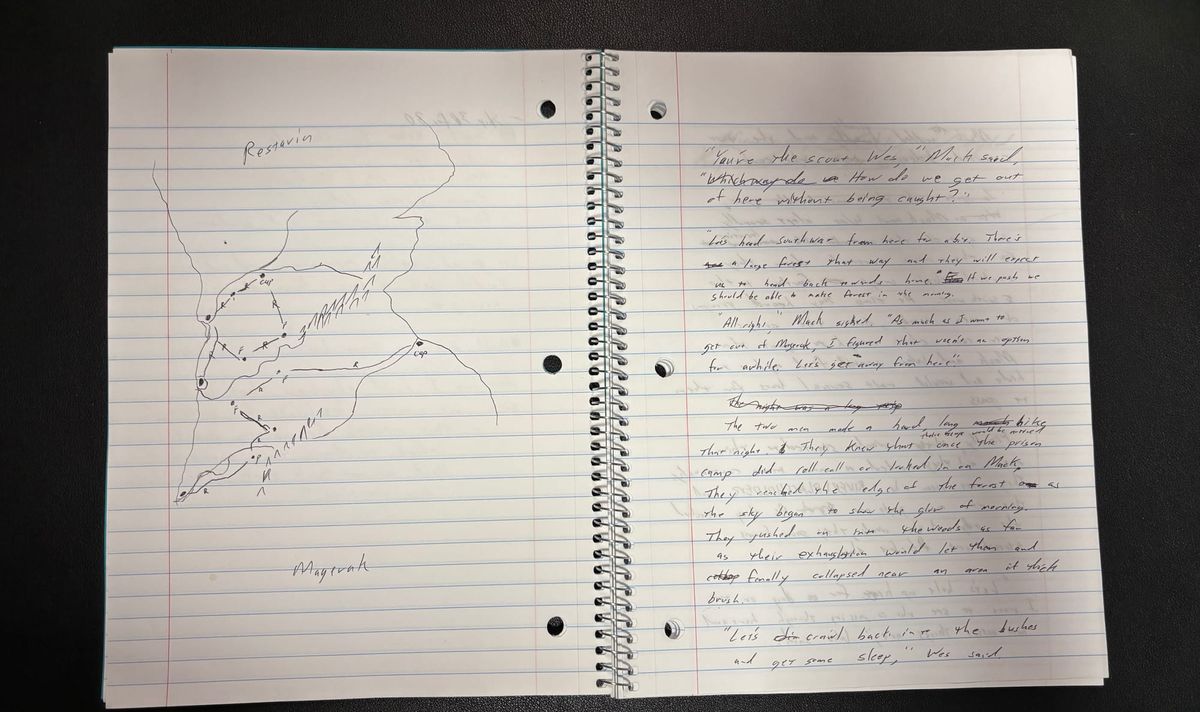 Restavin
cap
R
R
R
F
R
F
R
F
R
cap
F
R
F
R
R
P
R
Magerah
"You're the scout Wes," Mack said,
"Which way do we How do we get out
of here without being caught?"
"Let's head southwar from here for a bit. There's
a large forest that way and they will expect
us to head back towards home. If we push we
should be able to make forest in the morning.
"All right," Mack sighed. "As much as I want to
get out of Magerah I figured that wasn't an option
for awhile. Let's get away from here."
The night was a long
The two men made a hard, long hike
that night. They knew that once the prison
their escape would be noticed
camp did roll call or looked in on Mack.
They reached the edge of the forest as
the sky began to show the glow of morning.
They pushed on into the woods as far
as their exhaustion would let them and
finally collapsed near an area of thick
brush.
"Let's crawl back into the bushes
and get some sleep," Wes said.